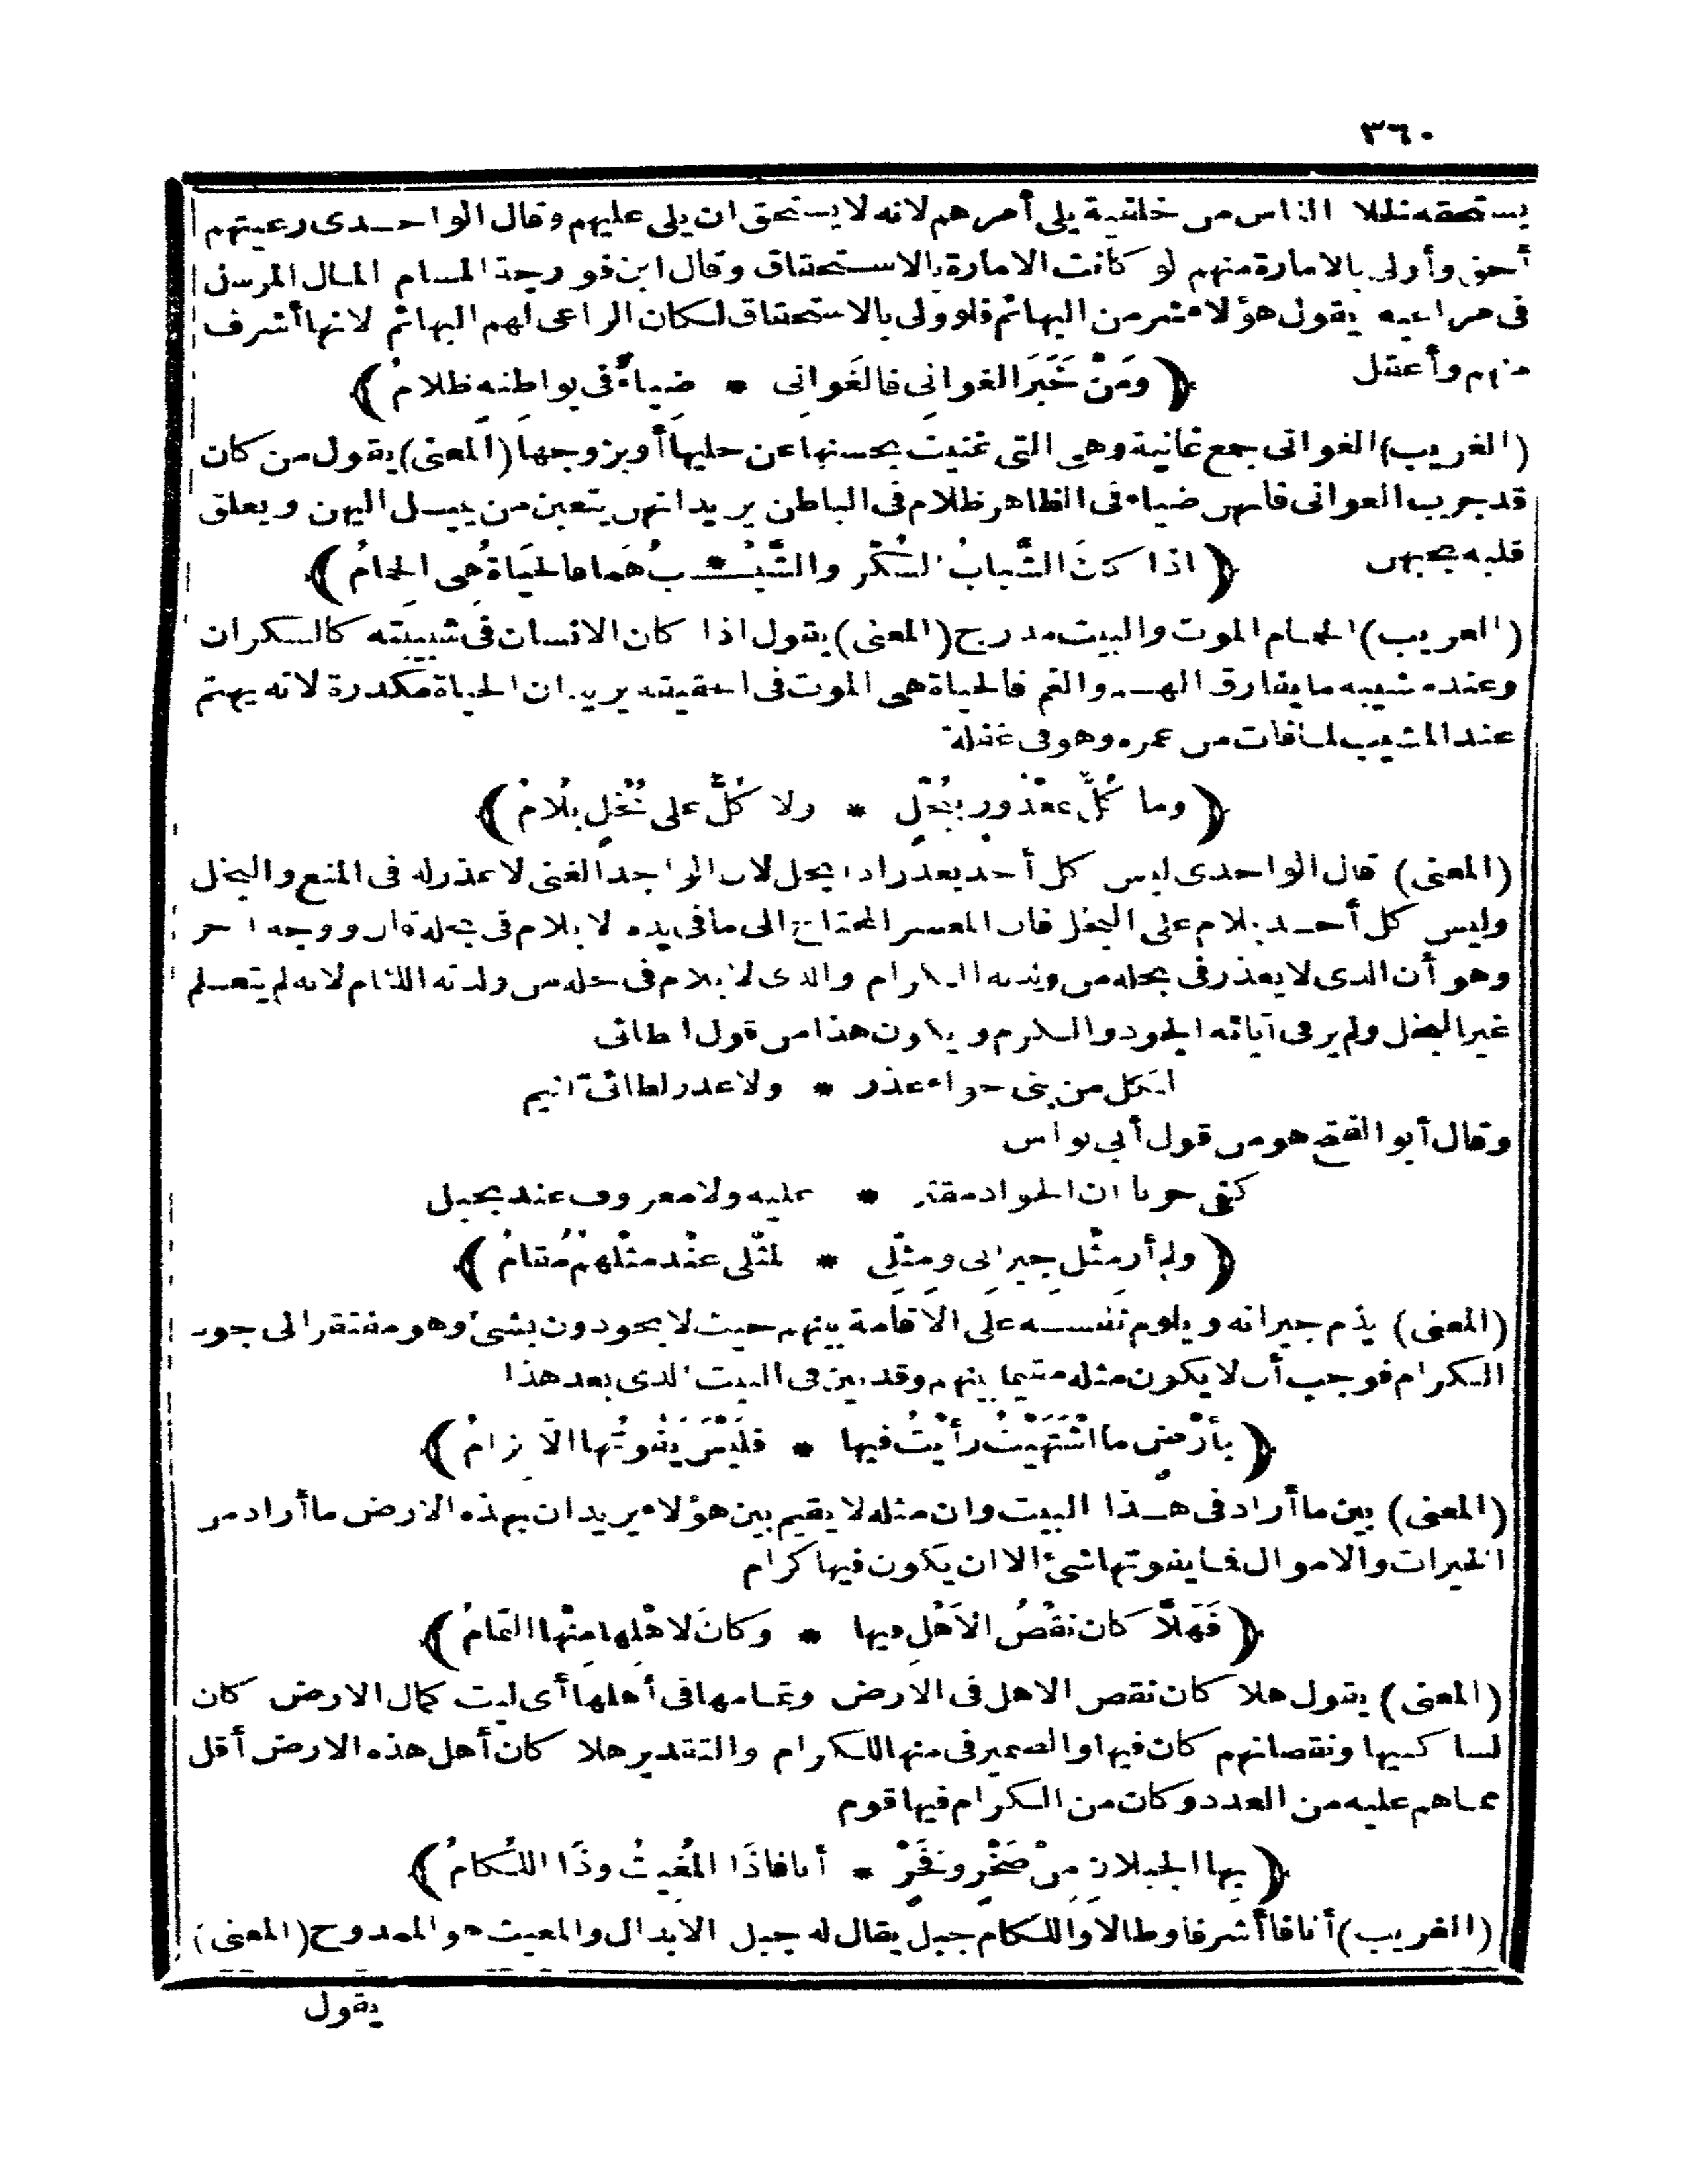 ٣٦٠
يستحقه لخلا الناس من خليفة يلى أمرهم لانه لا يستحق ان يلى عليهم وقال الواحدى رعيتهم
أحق وأولى بالامارة منهم لو كانت الامارة بالاستحقاق وقال ابن فورجة المسام المال المرسل
فى مراعيه يقول هؤلاء شر من البهائم فلو ولى بالاستحقاق لكان الراعى لهم البهائم لانها أشرف
منهم وأعقل
﴿ وَمَنْ خَبَرَ الغوانِى فالغَوانِى * ضِياءٌ فى بواطِنِه ظلامُ ﴾
(الغريب) الغوانى جمع غانية وهى التى غنيت بحسنها عن حليها أو بزوجها (المعنى) يقول من كان
قد جرب الغوانى فانهن ضياء فى الظاهر ظلام فى الباطن يريد انهن يتعبن من يميل اليهن ويعلق
قلبه بحبهن
﴿ اذا كانَ الشَّبابُ السُّكْرَ والشَّيْـ * ـبُ هَمًّا فالحَيَاةُ هِىَ الحِمامُ ﴾
(الغريب) الحمام الموت والبيت مدرج (المعنى) يقول اذا كان الانسان فى شبيبته كالسكران
وعنده شيبه ما يفارق الهم والغم فالحياة هى الموت فى الحقيقة يريد ان الحياة مكدرة لانه يهتم
عند المشيب لما فات من عمره وهو فى غفلة
﴿ وما كُلٌّ بمعْذورٍ ببُخْلٍ * ولا كُلٌّ على بُخْلٍ يُلامُ ﴾
(المعنى) قال الواحدى ليس كل أحد يعذر اذا بخل لان الواجد الغنى لا عذر له فى المنع والبخل
وليس كل أحد يلام على البخل فان المعسر المحتاج الى ما فى يده لا يلام فى بخله قال ووجه آخر
وهو أن الذى لا يعذر فى بخله من ولدته الكرام والذى لا يلام فى بخله من ولدته اللئام لانه لم يتعلم
غير البخل ولم ير فى آبائه الجود والكرم ويكون هذا من قول الطائى
لكل من بنى حواء عذر * ولا عذر لطائى لئيم
وقال أبو الفتح هو من قول أبى نواس
كفى حزنا ان الجواد مقتر * عليه ولا معروف عند بخيل
﴿ ولم أرَ مِثْلَ جِيرانِى ومِثْلِى * لمثْلِى عنْدَ مثْلِهمُ مُقامُ ﴾
(المعنى) يذم جيرانه ويلوم نفسه على الاقامة بينهم حيث لا يجودون بشئ وهو مفتقر الى جود
الكرام فوجب أن لا يكون مثله مقيما بينهم وقد بين فى البيت الذى بعد هذا
﴿ بأَرْضٍ ما اشْتَهَيْتُ رأَيْتُ فيها * فلَيْسَ يَفُوتُها الَّا كِرامُ ﴾
(المعنى) بين ما أراد فى هذا البيت وان مثله لا يقيم بين هؤلاء يريد ان بهذه الارض ما أراد من
الخيرات والاموال فما يفوتها شئ الا ان يكون فيها كرام
﴿ فَهَلَّا كانَ نقْصُ الاَهْلِ فيها * وَكانَ لاَهْلِها مِنْها التَّمامُ ﴾
(المعنى) يقول هلا كان نقص الاهل فى الارض وتمامها فى أهلها أى ليت كمال الارض كان
لساكنيها ونقصانهم كان فيها والضمير فى منها للكرام والتقدير هلا كان أهل هذه الارض أقل
مما هم عليه من العدد وكان من الكرام فيها قوم
﴿ بها الجبلانِ مِنْ صَخْرٍ وفَخْرٍ * أنافا ذَا المُغيثُ وذَا اللُّكامُ ﴾
(الغريب) أنافا أشرفا وطالا واللكام جبل يقال له جبل الابدال والمغيث هو الممدوح (المعنى)
يقول